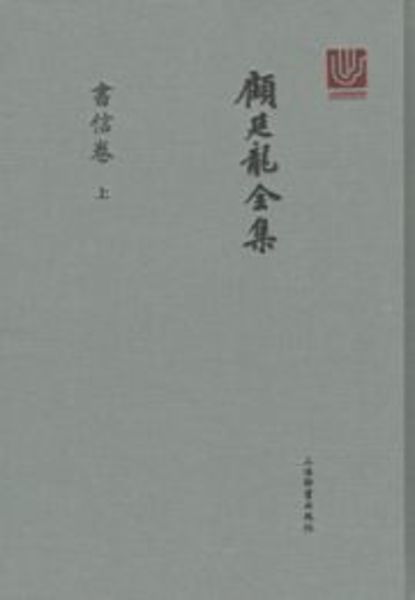 顧廷龍全集
書信卷 上
上海辭書出版社